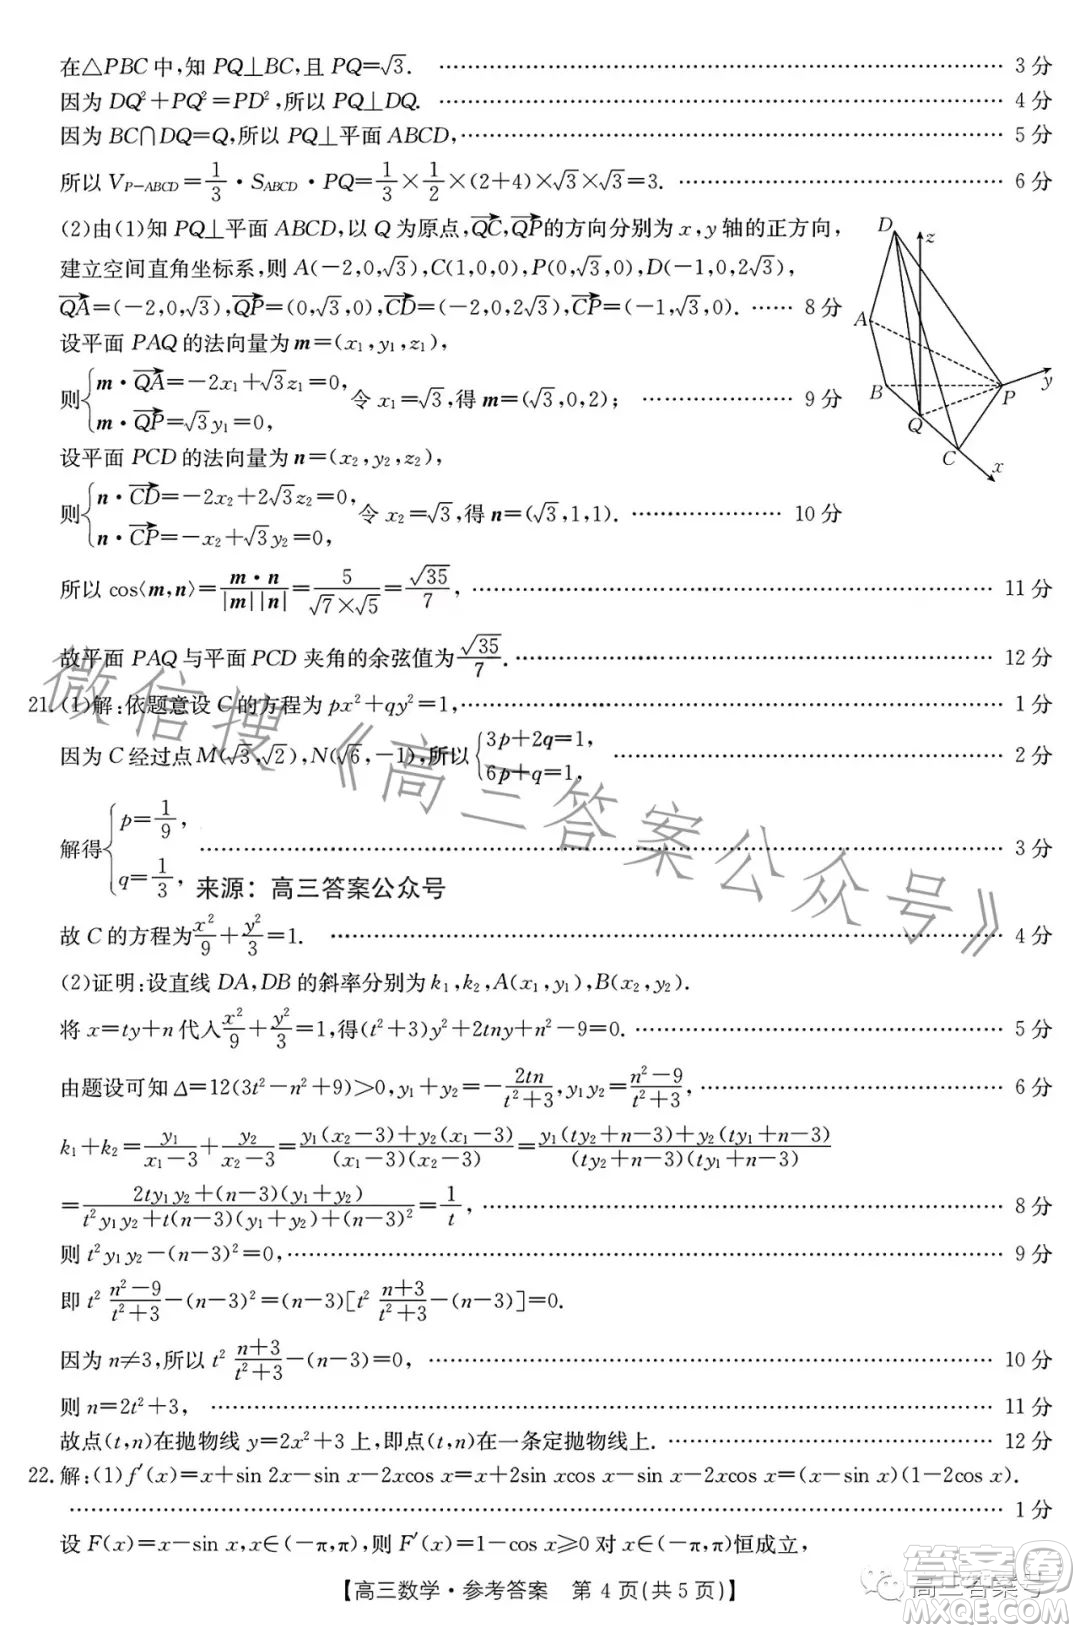 在△PBC中,知 PQ⊥BC,且 PQ=√3. ………… 3 分
因为 DQ²+PQ²=PD²,所以 PQ⊥DQ. ………… 4 分
因为 BC∩DQ=Q,所以 PQ⊥平面 ABCD, ………… 5 分
所以 V_{P-ABCD}=1/3·S_{ABCD}·PQ=1/3×1/2×(2+4)×√3×√3=3. ………… 6 分
(2)由(1)知 PQ⊥平面 ABCD,以 Q 为原点,→QC,→QP的方向分别为 x,y 轴的正方向,
建立空间直角坐标系,则 A(-2,0,√3),C(1,0,0),P(0,√3,0),D(-1,0,2√3),
→QA=(-2,0,√3),→QP=(0,√3,0),→CD=(-2,0,2√3),→CP=(-1,√3,0). …… 8 分
设平面 PAQ 的法向量为 m=(x₁,y₁,z₁),
则{m·→QA=-2x₁+√3z₁=0, m·→QP=√3y₁=0, 令 x₁=√3,得 m=(√3,0,2); ………… 9 分
设平面 PCD 的法向量为 n=(x₂,y₂,z₂),
则{n·→CD=-2x₂+2√3z₂=0, n·→CP=-x₂+√3y₂=0, 令 x₂=√3,得 n=(√3,1,1). ………… 10 分
D
z
A
B
P
y
Q
C
x
所以 cos⟨m,n⟩=m·n/|m||n|=5/(√7×√5)=√35/7, ………… 11 分
故平面 PAQ 与平面 PCD 夹角的余弦值为√35/7. ………… 12 分
21. (1)解:依题意设 C 的方程为 px²+qy²=1, ………… 1 分
因为 C 经过点 M(√3,√2),N(√6,-1),所以{3p+2q=1, 6p+q=1, ………… 2 分
解得{p=1/9, q=1/3, ………… 3 分
来源：高三答案公众号
故 C 的方程为x²/9+y²/3=1. ………… 4 分
(2)证明:设直线 DA,DB 的斜率分别为 k₁,k₂,A(x₁,y₁),B(x₂,y₂).
将 x=ty+n 代入x²/9+y²/3=1,得(t²+3)y²+2tny+n²-9=0. ………… 5 分
由题设可知 Δ=12(3t²-n²+9)>0,y₁+y₂=-2tn/(t²+3),y₁y₂=(n²-9)/(t²+3), ………… 6 分
k₁+k₂=y₁/(x₁-3)+y₂/(x₂-3)=[y₁(x₂-3)+y₂(x₁-3)]/[(x₁-3)(x₂-3)]=[y₁(ty₂+n-3)+y₂(ty₁+n-3)]/[(ty₂+n-3)(ty₁+n-3)]
=[2ty₁y₂+(n-3)(y₁+y₂)]/[t²y₁y₂+t(n-3)(y₁+y₂)+(n-3)²]=1/t, ………… 8 分
则 t²y₁y₂-(n-3)²=0, ………… 9 分
即 t² (n²-9)/(t²+3)-(n-3)²=(n-3)[t² (n+3)/(t²+3)-(n-3)]=0.
因为 n≠3,所以 t² (n+3)/(t²+3)-(n-3)=0, ………… 10 分
则 n=2t²+3, ………… 11 分
故点(t,n)在抛物线 y=2x²+3 上,即点(t,n)在一条定抛物线上. ………… 12 分
22. 解:(1)f′(x)=x+sin 2x-sin x-2xcos x=x+2sin xcos x-sin x-2xcos x=(x-sin x)(1-2cos x).
………… 1 分
设 F(x)=x-sin x,x∈(-π,π),则 F′(x)=1-cos x≥0 对 x∈(-π,π)恒成立,
【高三数学·参考答案 第 4 页(共 5 页)】
微信搜《高三答案公众号》
高三答案号
答案圈
MXQE.COM